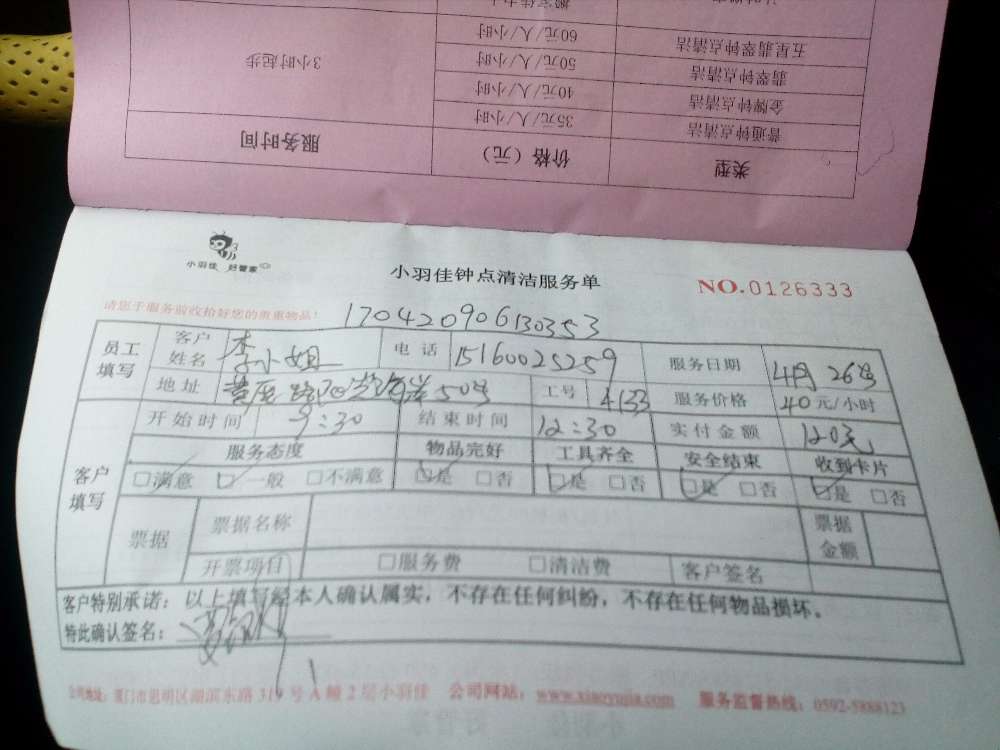 3小时起步
60元/人/小时
五星翡翠钟点清洁
50元/人/小时
翡翠钟点清洁
40元/人/小时
金牌钟点清洁
35元/人/小时
普通钟点清洁
服务时间 价格（元） 类型
小羽佳 好管家
小羽佳钟点清洁服务单
NO.0126333
请您于服务前收拾好您的贵重物品！
170420906130353
员工填写 客户姓名 李小姐 电话 15160025259 服务日期 4月26号
地址 50号 工号 4133 服务价格 40元/小时
客户填写 开始时间 9:30 结束时间 12:30 实付金额 120元
服务态度 物品完好 工具齐全 安全结束 收到卡片
□满意 □一般 □不满意 □是 □否 □是 □否 □是 □否 □是 □否
票据 票据名称 票据金额
开票项目 □服务费 □清洁费 客户签名
客户特别承诺：以上填写经本人确认属实，不存在任何纠纷，不存在任何物品损坏。
特此确认签名：
公司地址：厦门市思明区湖滨东路319号A幢2层小羽佳 公司网站：www.xiaoyujia.com 服务监督热线：0592-5888123